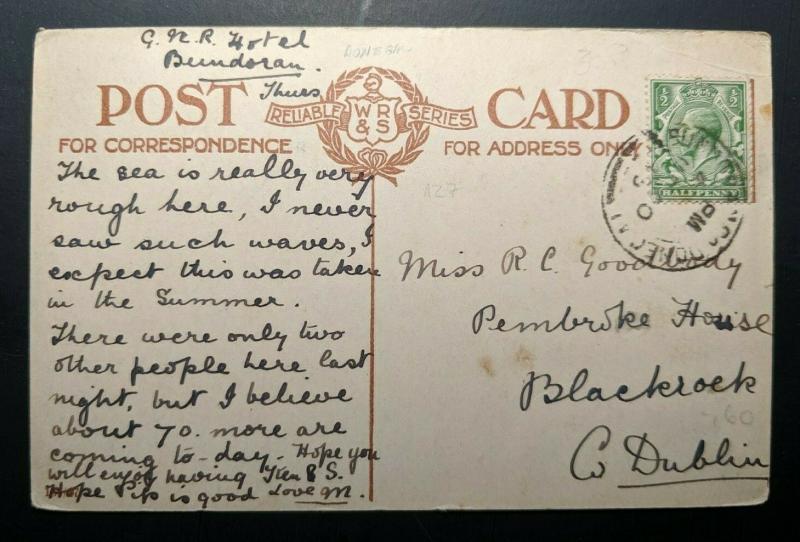 G.N.R. Hotel
Bundoran.
Thurs
DONEGAL
POST CARD
RELIABLE WR&S SERIES
FOR CORRESPONDENCE
FOR ADDRESS ONLY
½ ½
HALFPENNY
BUNDORAN
CO. DONEGAL
PM
The sea is really very
rough here, I never
saw such waves, I
expect this was taken
in the Summer.
There were only two
other people here last
night, but I believe
about 70. more are
coming to-day. Hope you
will enjoy having & S.
Hope is good Love M.
A27
Miss R. C. Goodbody
Pembroke House
Blackrock
Co Dublin